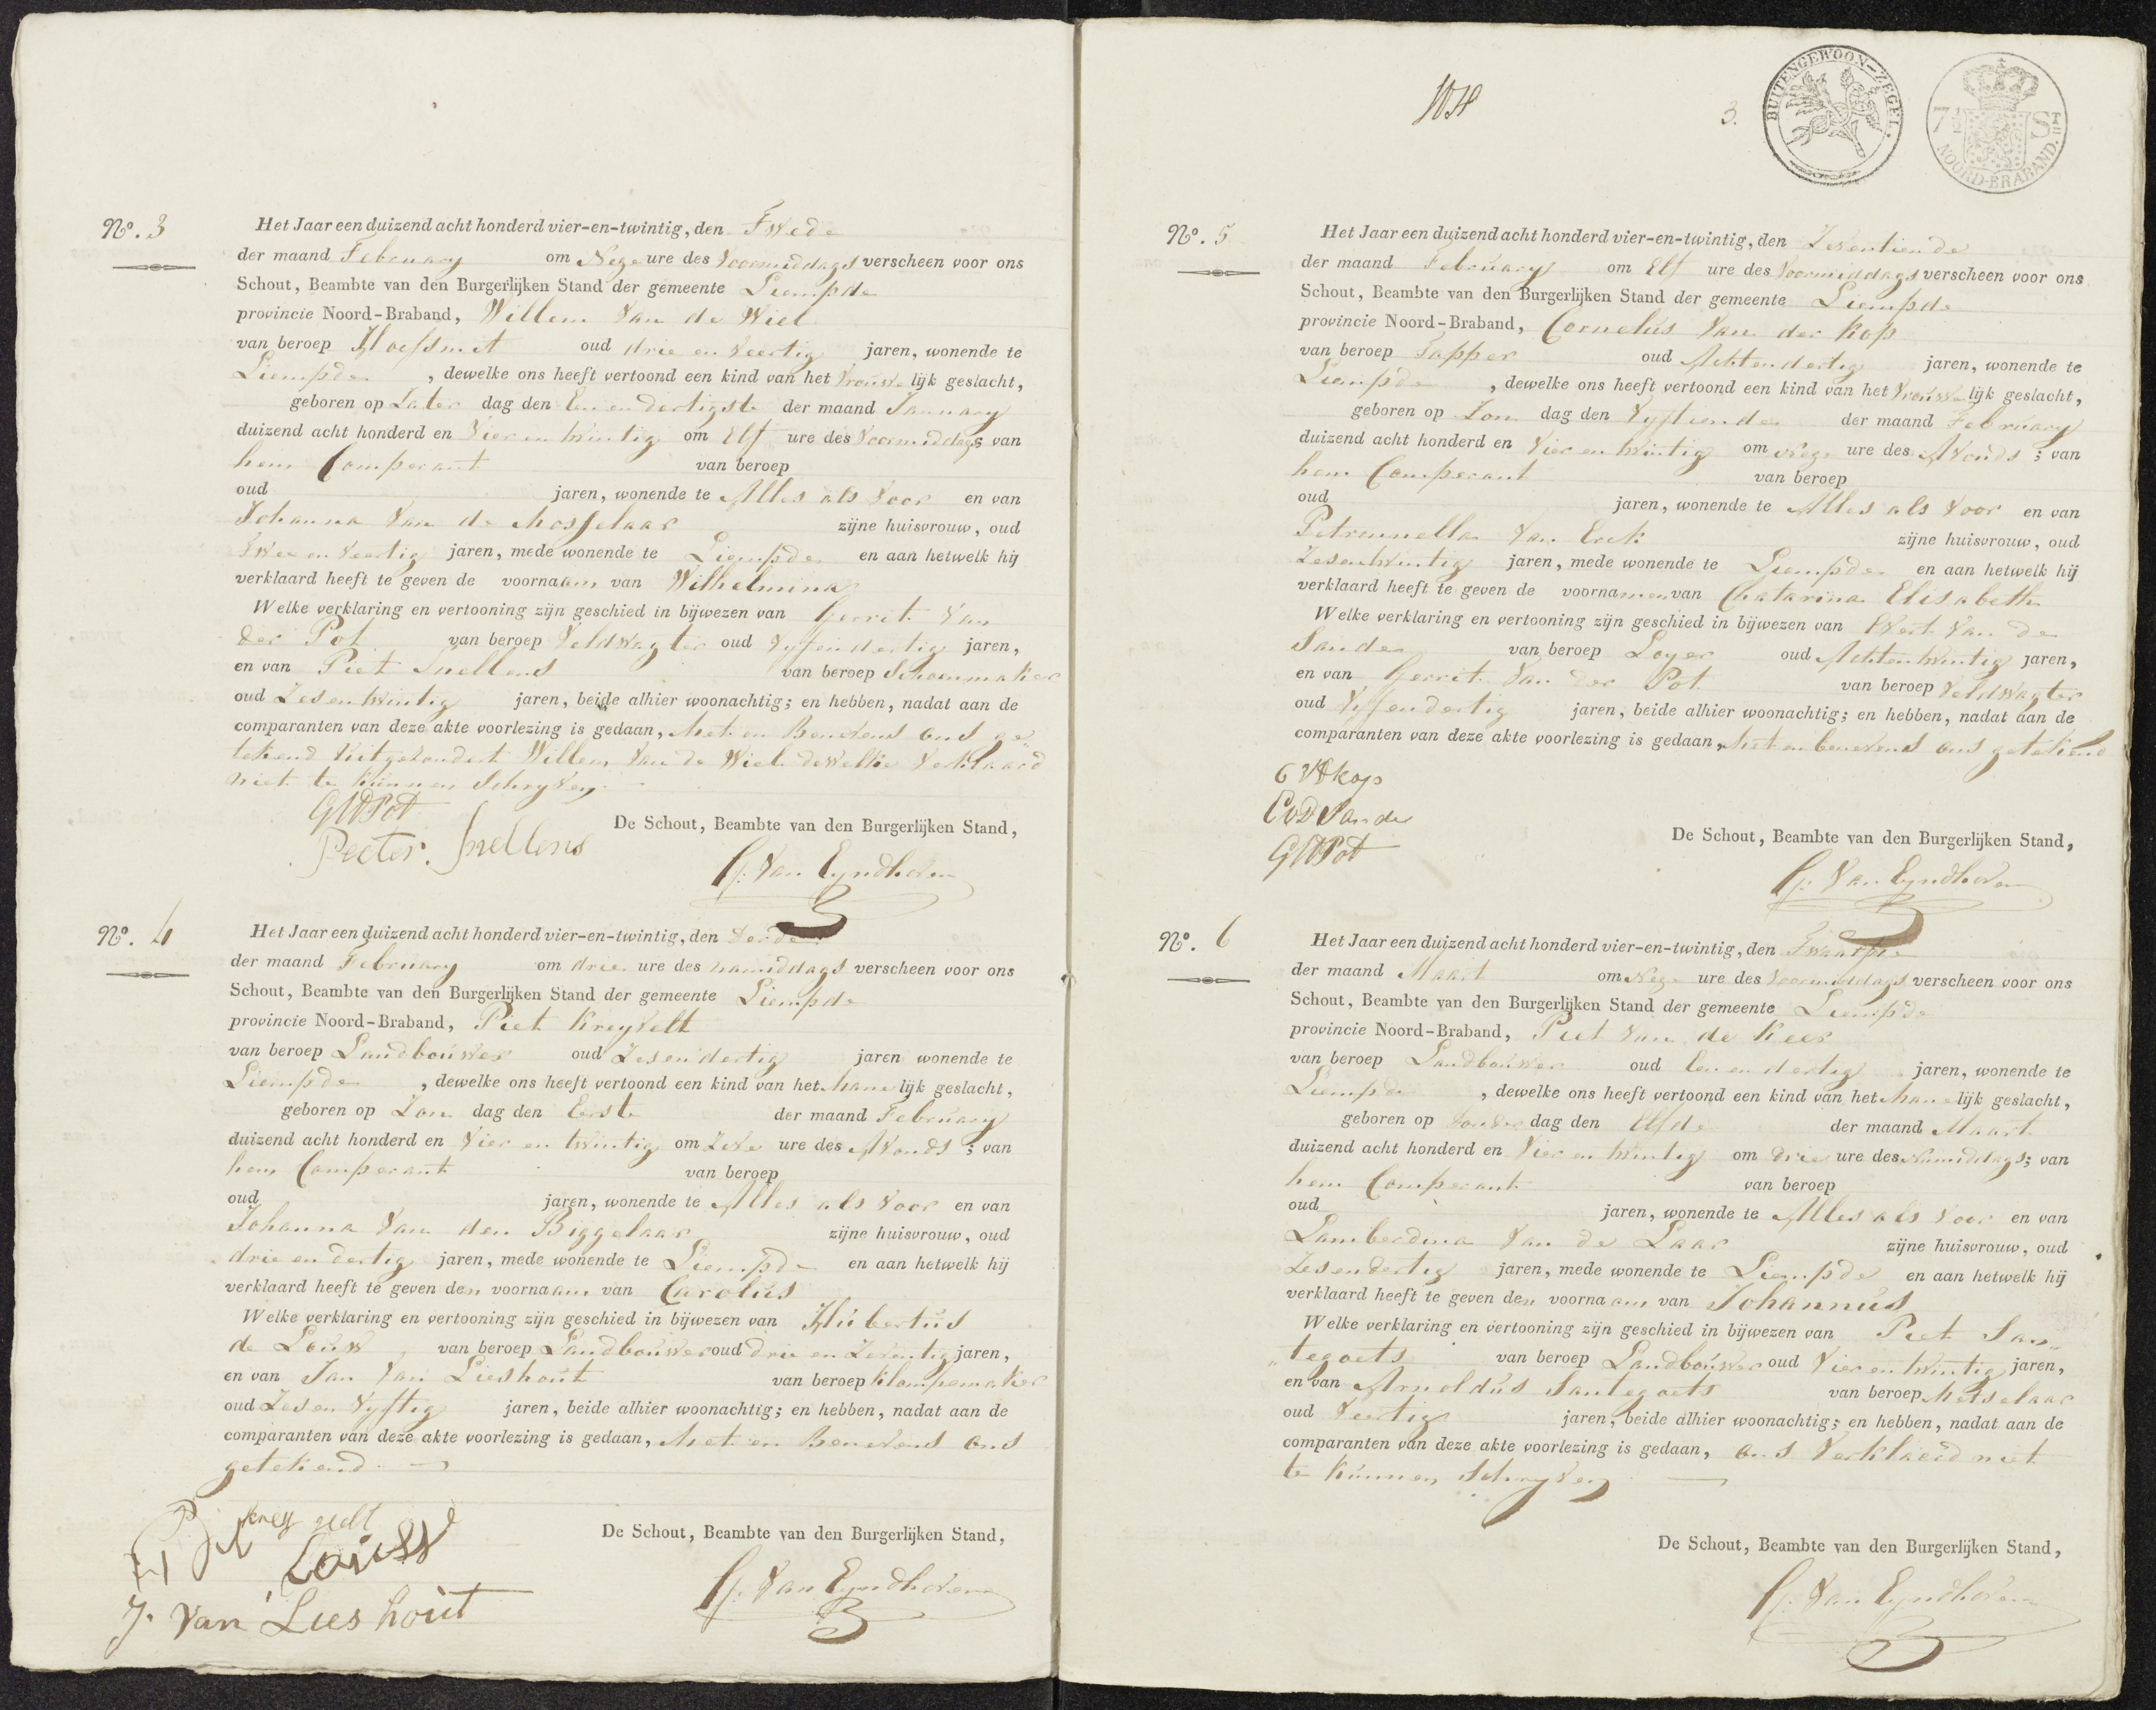 Nº. 3
Het Jaar een duizend acht honderd vier-en-twintig, den Twede
der maand February om Nege ure des Voormiddags verscheen voor ons
Schout, Beambte van den Burgerlijken Stand der gemeente Liempde
provincie Noord-Braband, Willem Van de Wiel
van beroep Hoefsmit oud drie en Veertig jaren, wonende te
Liempde , dewelke ons heeft vertoond een kind van het Vrouwelijk geslacht,
geboren op Zater dag den Een en dertigste der maand January
duizend acht honderd en Vier en twintig om Elf ure des Voormiddags van
hem Comperant van beroep
oud jaren, wonende te Alles als Voor en van
Johanna Van de Mosselaar zijne huisvrouw, oud
Twee en Veertig jaren, mede wonende te Liempde en aan hetwelk hij
verklaard heeft te geven de voornaam van Wilhelmina
Welke verklaring en vertooning zijn geschied in bijwezen van Gerrit Van
der Pot van beroep Veldwagter oud Vyfendertig jaren,
en van Piet Snellens van beroep Schoenmaker
oud Zesentwintig jaren, beide alhier woonachtig; en hebben, nadat aan de
comparanten van deze akte voorlezing is gedaan, Met en Benevens ons ge„
tekend Uitgezondert Willem Van de Wiel dewelke Verklaard
niet te kunnen Schryven
GVDPot
Peeter. Snellens
De Schout, Beambte van den Burgerlijken Stand,
G. Van Eyndhoven
Nº. 4
Het Jaar een duizend acht honderd vier-en-twintig, den Derde
der maand February om drie ure des namiddags verscheen voor ons
Schout, Beambte van den Burgerlijken Stand der gemeente Liempde
provincie Noord-Braband, Piet Kreyvelt
van beroep Landbouwer oud Zesendertig jaren wonende te
Liempde , dewelke ons heeft vertoond een kind van het Manelijk geslacht,
geboren op Zon dag den Eerste der maand February
duizend acht honderd en Vier en twintig om Zeve ure des Avonds ; van
hem Comperant van beroep
oud jaren, wonende te Alles als Voor en van
Johanna Van den Biggelaar zijne huisvrouw, oud
drie en dertig jaren, mede wonende te Liempde en aan hetwelk hij
verklaard heeft te geven den voornaam van Carolus
Welke verklaring en vertooning zijn geschied in bijwezen van Hubertus
de Louw van beroep Landbouwer oud drie en Zeventig jaren,
en van Jan Van Lieshout van beroep Klompemaker
oud Zesen Vyftig jaren, beide alhier woonachtig; en hebben, nadat aan de
comparanten van deze akte voorlezing is gedaan, Met en Benevens ons
getekend
P Krey velt
Louw
J. Van Lieshout
De Schout, Beambte van den Burgerlijken Stand,
G. Van Eyndhoven
3.
BUITENGEWOON-ZEGEL.
7½ Sᵀ
NOORD-BRABAND.
Nº. 5
Het Jaar een duizend acht honderd vier-en-twintig, den Zeventiende
der maand February om Elf ure des Voormiddags verscheen voor ons
Schout, Beambte van den Burgerlijken Stand der gemeente Liempde
provincie Noord-Braband, Cornelus Van der Kop
van beroep Tapper oud Achtendertig jaren, wonende te
Liempde , dewelke ons heeft vertoond een kind van het Vrouwelijk geslacht,
geboren op Zon dag den Vyftiende der maand February
duizend acht honderd en Vier en twintig om Nege ure des Avonds ; van
hem Comperant van beroep
oud jaren, wonende te Alles als Voor en van
Petronnella Van Erck zijne huisvrouw, oud
Zesentwintig jaren, mede wonende te Liempde en aan hetwelk hij
verklaard heeft te geven de voornamen van Chatarina Elisabeth
Welke verklaring en vertooning zijn geschied in bijwezen van Evert Van de
Sande van beroep Loyer oud Achtentwintig jaren,
en van Gerrit Van der Pot van beroep Veldwagter
oud Vyfendertig jaren, beide alhier woonachtig; en hebben, nadat aan de
comparanten van deze akte voorlezing is gedaan, Met en benevens ons getekend
C VD kop
EVDSande
GVDPot
De Schout, Beambte van den Burgerlijken Stand,
G. Van Eyndhoven
Nº. 6
Het Jaar een duizend acht honderd vier-en-twintig, den Twaalfde
der maand Maart om Nege ure des Voormiddags verscheen voor ons
Schout, Beambte van den Burgerlijken Stand der gemeente Liempde
provincie Noord-Braband, Piet Van de Keer
van beroep Landbouwer oud Een en dertig jaren, wonende te
Liempde , dewelke ons heeft vertoond een kind van het Manelijk geslacht,
geboren op Donder dag den Elfde der maand Maart
duizend acht honderd en Vier en twintig om Drie ure des Namiddags; van
hem Comperant van beroep
oud jaren, wonende te Alles als Voor en van
Lamberdina Van de Laar zijne huisvrouw, oud
Zesendertig jaren, mede wonende te Liempde en aan hetwelk hij
verklaard heeft te geven den voornaam van Johannus
Welke verklaring en vertooning zijn geschied in bijwezen van Piet San„
„tegoets van beroep Landbouwer oud Vier en twintig jaren,
en van Arnoldus Santegoets van beroep Metselaar
oud Veertig jaren, beide alhier woonachtig; en hebben, nadat aan de
comparanten van deze akte voorlezing is gedaan, ons Verklaerd niet
te kunnen Schryven
De Schout, Beambte van den Burgerlijken Stand,
G. Van Eyndhoven